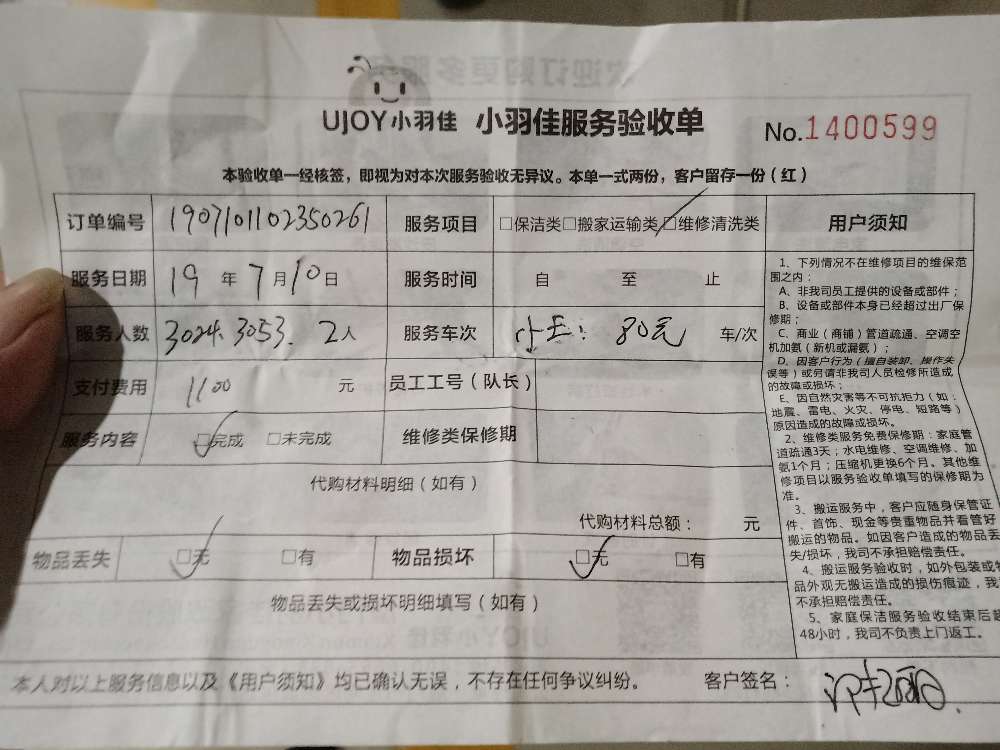 UJOY小羽佳 小羽佳服务验收单 No.1400599
本验收单一经核签，即视为对本次服务验收无异议。本单一式两份，客户留存一份（红）
订单编号 1907101102350261 服务项目 □保洁类□搬家运输类□维修清洗类
服务日期 19年7月10日 服务时间 自 至 止
服务人数 3024.3053. 2人 服务车次 80元 车/次
支付费用 1100 元 员工工号（队长）
服务内容 □完成 □未完成 维修类保修期
代购材料明细（如有）
代购材料总额： 元
物品丢失 □无 □有 物品损坏 □无 □有
物品丢失或损坏明细填写（如有）
用户须知
1、下列情况不在维修项目的维保范
围之内：
A、非我司员工提供的设备或部件；
B、设备或部件本身已经超过出厂保
修期；
C、商业（商铺）管道疏通、空调空
机加氨（新机或漏氨）；
D、因客户行为（擅自装卸、操作失
误等）或另请非我司人员检修所造成
的故障或损坏；
E、因自然灾害等不可抗拒力（如：
地震、雷电、火灾、停电、短路等）
原因造成的故障或损坏。
2、维修类服务免费保修期：家庭管
道疏通3天；水电维修、空调维修、加
氨1个月；压缩机更换6个月。其他维
修项目以服务验收单填写的保修期为
准。
3、搬运服务中，客户应随身保管证
件、首饰、现金等贵重物品并看管好
搬运的物品。如因客户造成的物品丢
失/损坏，我司不承担赔偿责任。
4、搬运服务验收时，如外包装或物
品外观无搬运造成的损伤痕迹，我
不承担赔偿责任。
5、家庭保洁服务验收结束后超
48小时，我司不负责上门返工。
本人对以上服务信息以及《用户须知》均已确认无误，不存在任何争议纠纷。 客户签名：